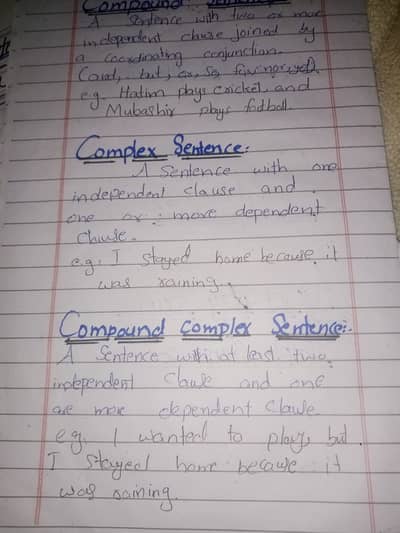 Compound Sentence:
A Sentence with two or more
independent clause joined by
a coordinating conjunction.
(and, but, or, so, for, nor, yet)
e.g. Hatim plays cricket and
Mubashir plays fodball
Complex Sentence:
A Sentence with one
independent clause and
one or more dependent
clause.
e.g. I stayed home because it
was raining.
Compound complex Sentence:
A Sentence with at least two
independent Clause and one
are more dependent Clause
e.g. I wanted to play, but
I stayed home because it
was raining.